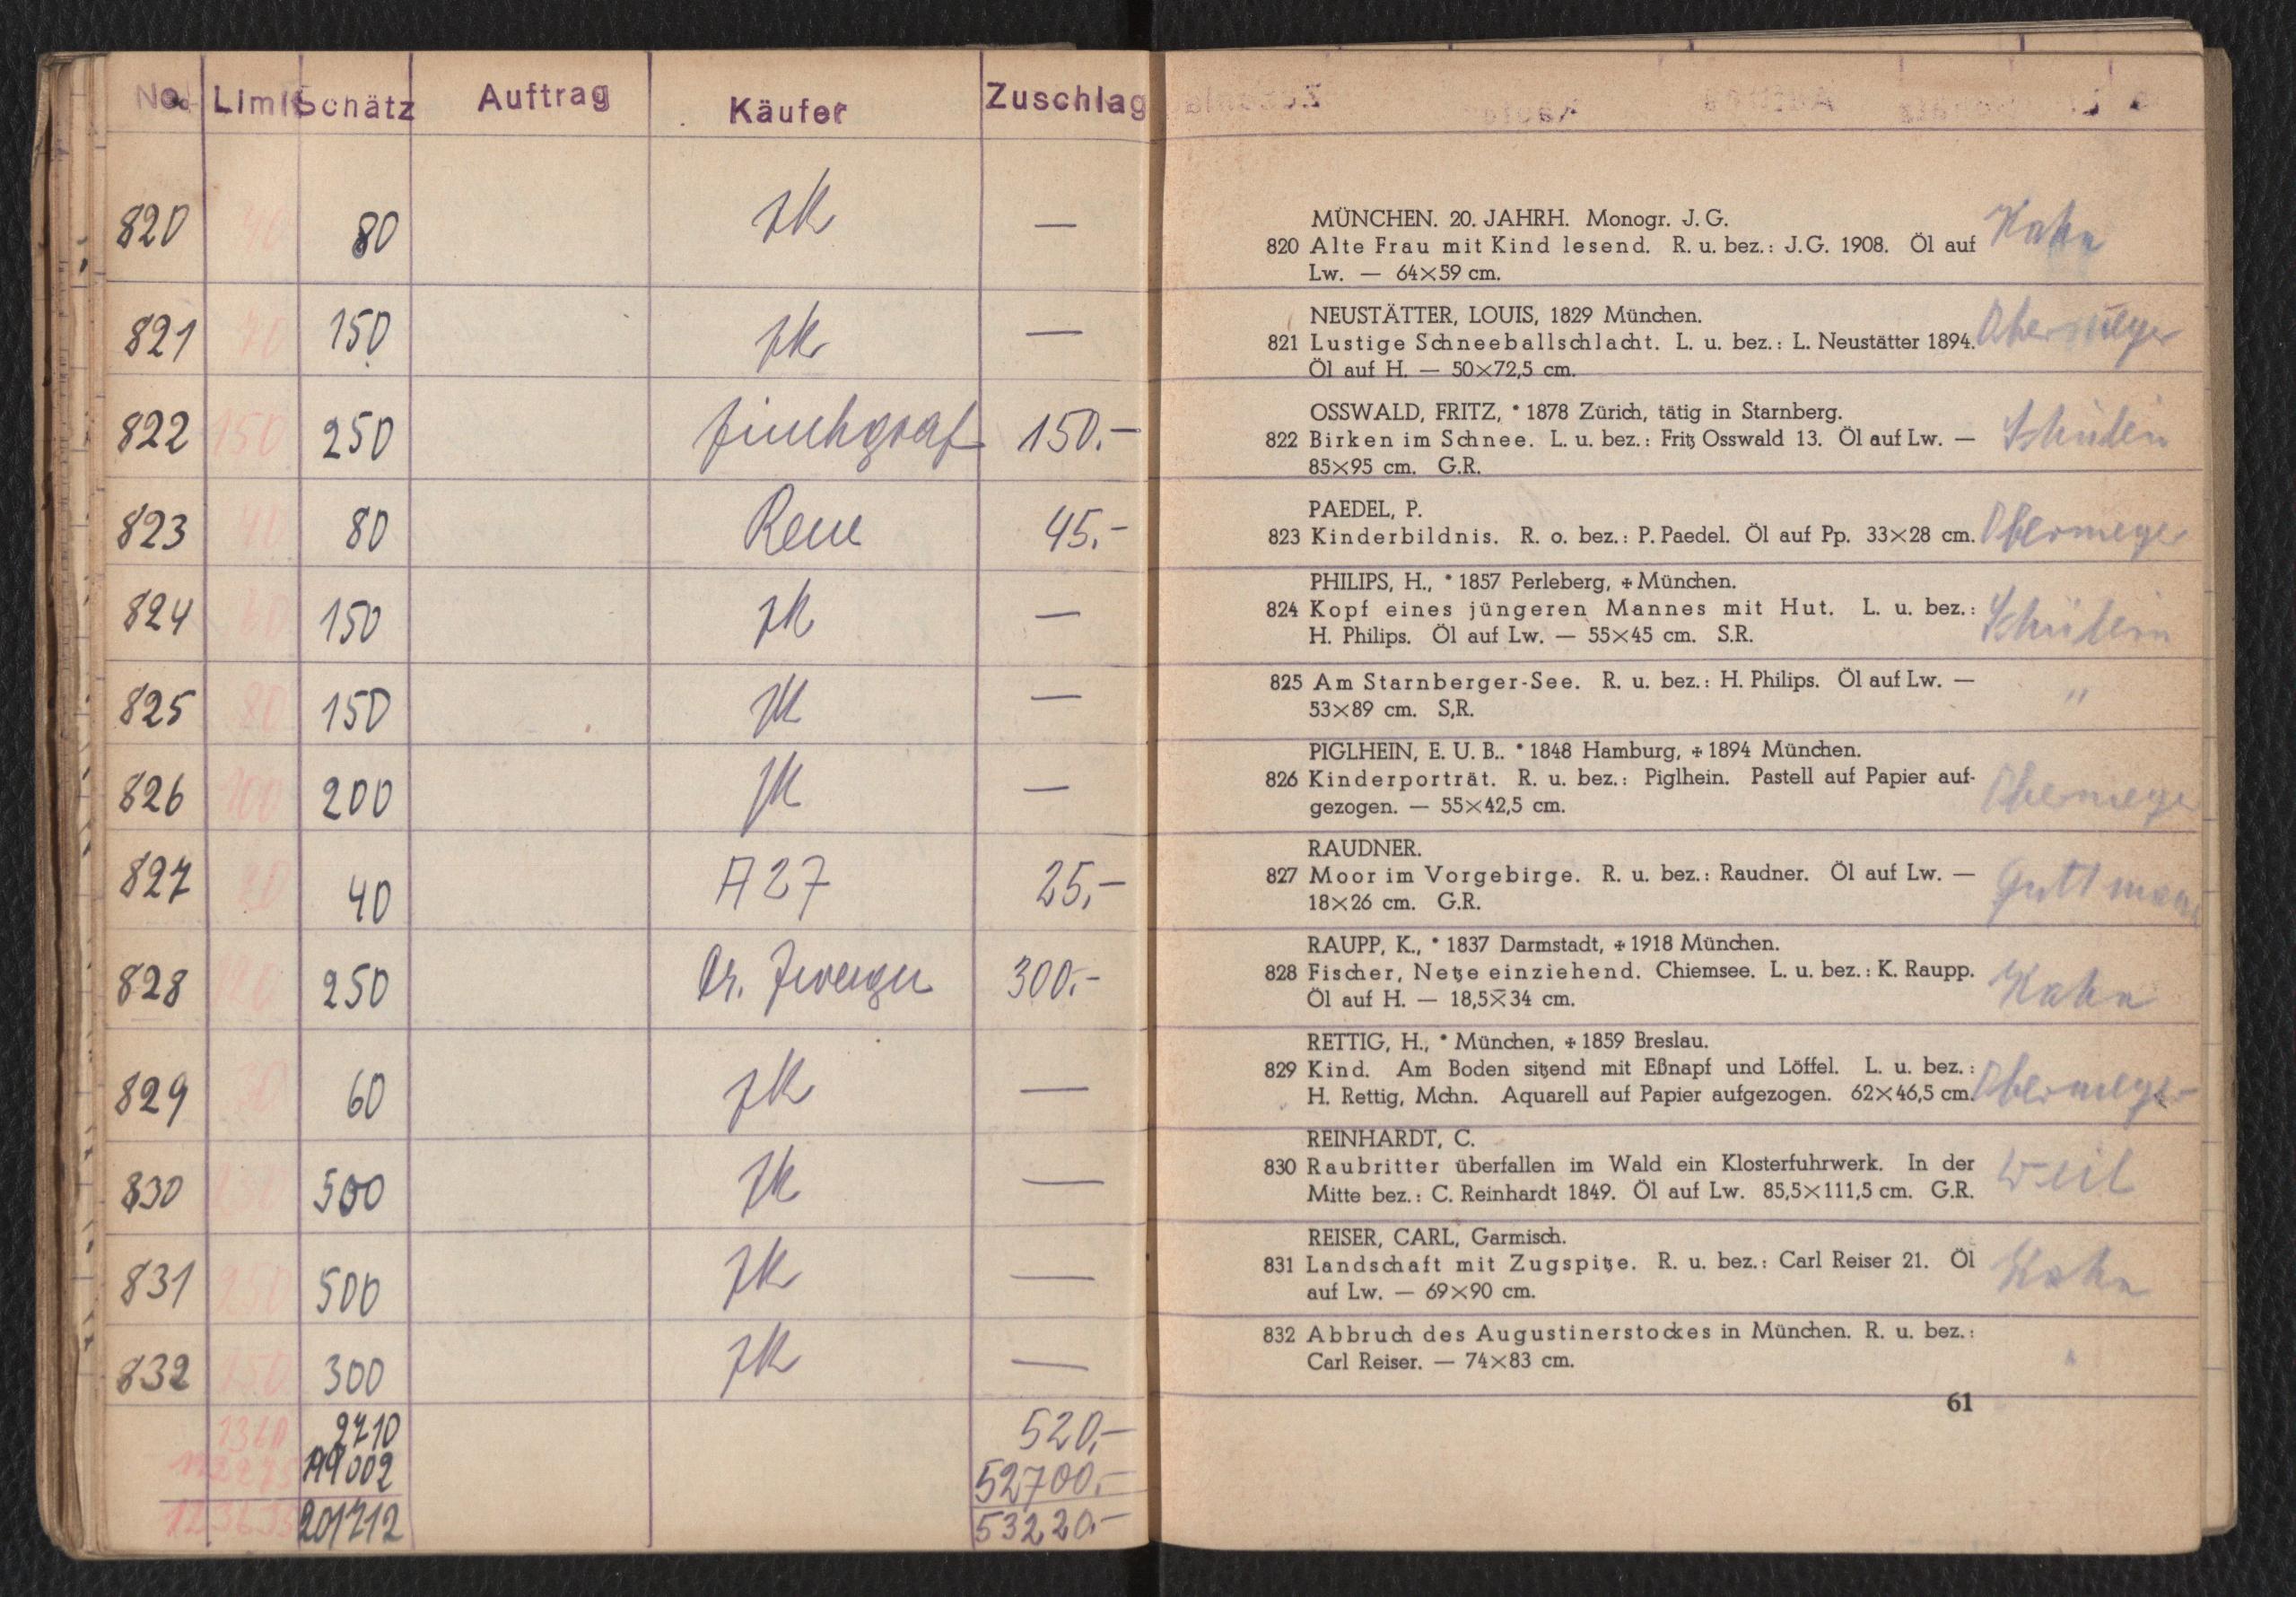 No. Limit Schätz Auftrag Käufer Zuschlag
820 40 80 zk —
821 70 150 zk —
822 150 250 150.-
823 40 80 45.-
824 60 150 zk —
825 80 150 zk —
826 100 200 zk —
827 20 40 A 27 25,-
828 250 Dr. 300.-
829 30 60 zk —
830 500 zk —
831 250 500 zk —
832 150 300 zk —
2710 520,-
52700.-
201712 53220.-
MÜNCHEN. 20. JAHRH. Monogr. J. G.
820 Alte Frau mit Kind lesend. R. u. bez.: J.G. 1908. Öl auf Kahn
Lw. — 64×59 cm.
NEUSTÄTTER, LOUIS, 1829 München.
821 Lustige Schneeballschlacht. L. u. bez.: L. Neustätter 1894. Obermeyer
Öl auf H. — 50×72,5 cm.
OSSWALD, FRITZ, * 1878 Zürich, tätig in Starnberg.
822 Birken im Schnee. L. u. bez.: Fritz Osswald 13. Öl auf Lw. — Schülein
85×95 cm. G.R.
PAEDEL, P.
823 Kinderbildnis. R. o. bez.: P. Paedel. Öl auf Pp. 33×28 cm. Obermeyer
PHILIPS, H., * 1857 Perleberg, + München.
824 Kopf eines jüngeren Mannes mit Hut. L. u. bez.: Schülein
H. Philips. Öl auf Lw. — 55×45 cm. S.R.
825 Am Starnberger-See. R. u. bez.: H. Philips. Öl auf Lw. — "
53×89 cm. S,R.
PIGLHEIN, E. U. B.. * 1848 Hamburg, + 1894 München.
826 Kinderporträt. R. u. bez.: Piglhein. Pastell auf Papier auf- Obermeyer
gezogen. — 55×42,5 cm.
RAUDNER.
827 Moor im Vorgebirge. R. u. bez.: Raudner. Öl auf Lw. — Guttmann
18×26 cm. G.R.
RAUPP, K., * 1837 Darmstadt, + 1918 München.
828 Fischer, Netze einziehend. Chiemsee. L. u. bez.: K. Raupp. Kahn
Öl auf H. — 18,5×34 cm.
RETTIG, H., * München, + 1859 Breslau.
829 Kind. Am Boden sitzend mit Eßnapf und Löffel. L. u. bez.:
H. Rettig, Mchn. Aquarell auf Papier aufgezogen. 62×46,5 cm. Obermeyer
REINHARDT, C.
830 Raubritter überfallen im Wald ein Klosterfuhrwerk. In der Weil
Mitte bez.: C. Reinhardt 1849. Öl auf Lw. 85,5×111,5 cm. G.R.
REISER, CARL, Garmisch.
831 Landschaft mit Zugspitze. R. u. bez.: Carl Reiser 21. Öl Kahn
auf Lw. — 69×90 cm.
832 Abbruch des Augustinerstockes in München. R. u. bez.:
Carl Reiser. — 74×83 cm. "
61